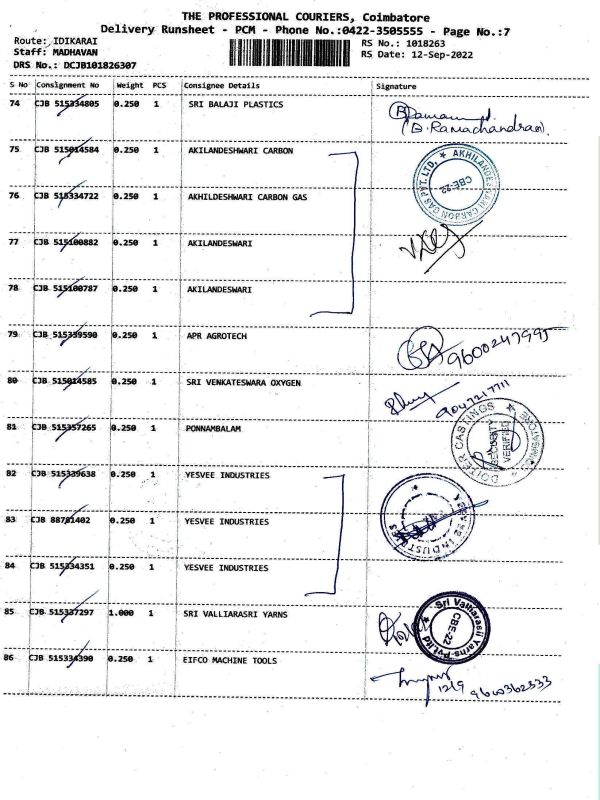 THE PROFESSIONAL COURIERS, Coimbatore
Delivery Runsheet - PCM - Phone No.:0422-3505555 - Page No.:7
Route: IDIKARAI
RS No.: 1018263
Staff: MADHAVAN
RS Date: 12-Sep-2022
DRS No.: DCJB101826307
S No Consignment No Weight PCS Consignee Details Signature
74 CJB 515334805 0.250 1 SRI BALAJI PLASTICS
(B.Ramachandran)
75 CJB 515014584 0.250 1 AKILANDESHWARI CARBON
AKHILANDESWARI CARBON GAS PVT. LTD.
CBE-22
76 CJB 515334722 0.250 1 AKHILDESHWARI CARBON GAS
77 CJB 515100882 0.250 1 AKILANDESWARI
78 CJB 515100787 0.250 1 AKILANDESWARI
79 CJB 515339590 0.250 1 APR AGROTECH
9600247995
80 CJB 515014585 0.250 1 SRI VENKATESWARA OXYGEN
9047217711
81 CJB 515357265 0.250 1 PONNAMBALAM
DOITER CASTINGS
SECURITY
VERIFIED
82 CJB 515339638 0.250 1 YESVEE INDUSTRIES
83 CJB 88781402 0.250 1 YESVEE INDUSTRIES
INDUSTRIES
84 CJB 515334351 0.250 1 YESVEE INDUSTRIES
85 CJB 515337297 1.000 1 SRI VALLIARASRI YARNS
Sri Valliarasii Yarns Pvt.ltd
CBE-22
86 CJB 515334390 0.250 1 EIFCO MACHINE TOOLS
12/9